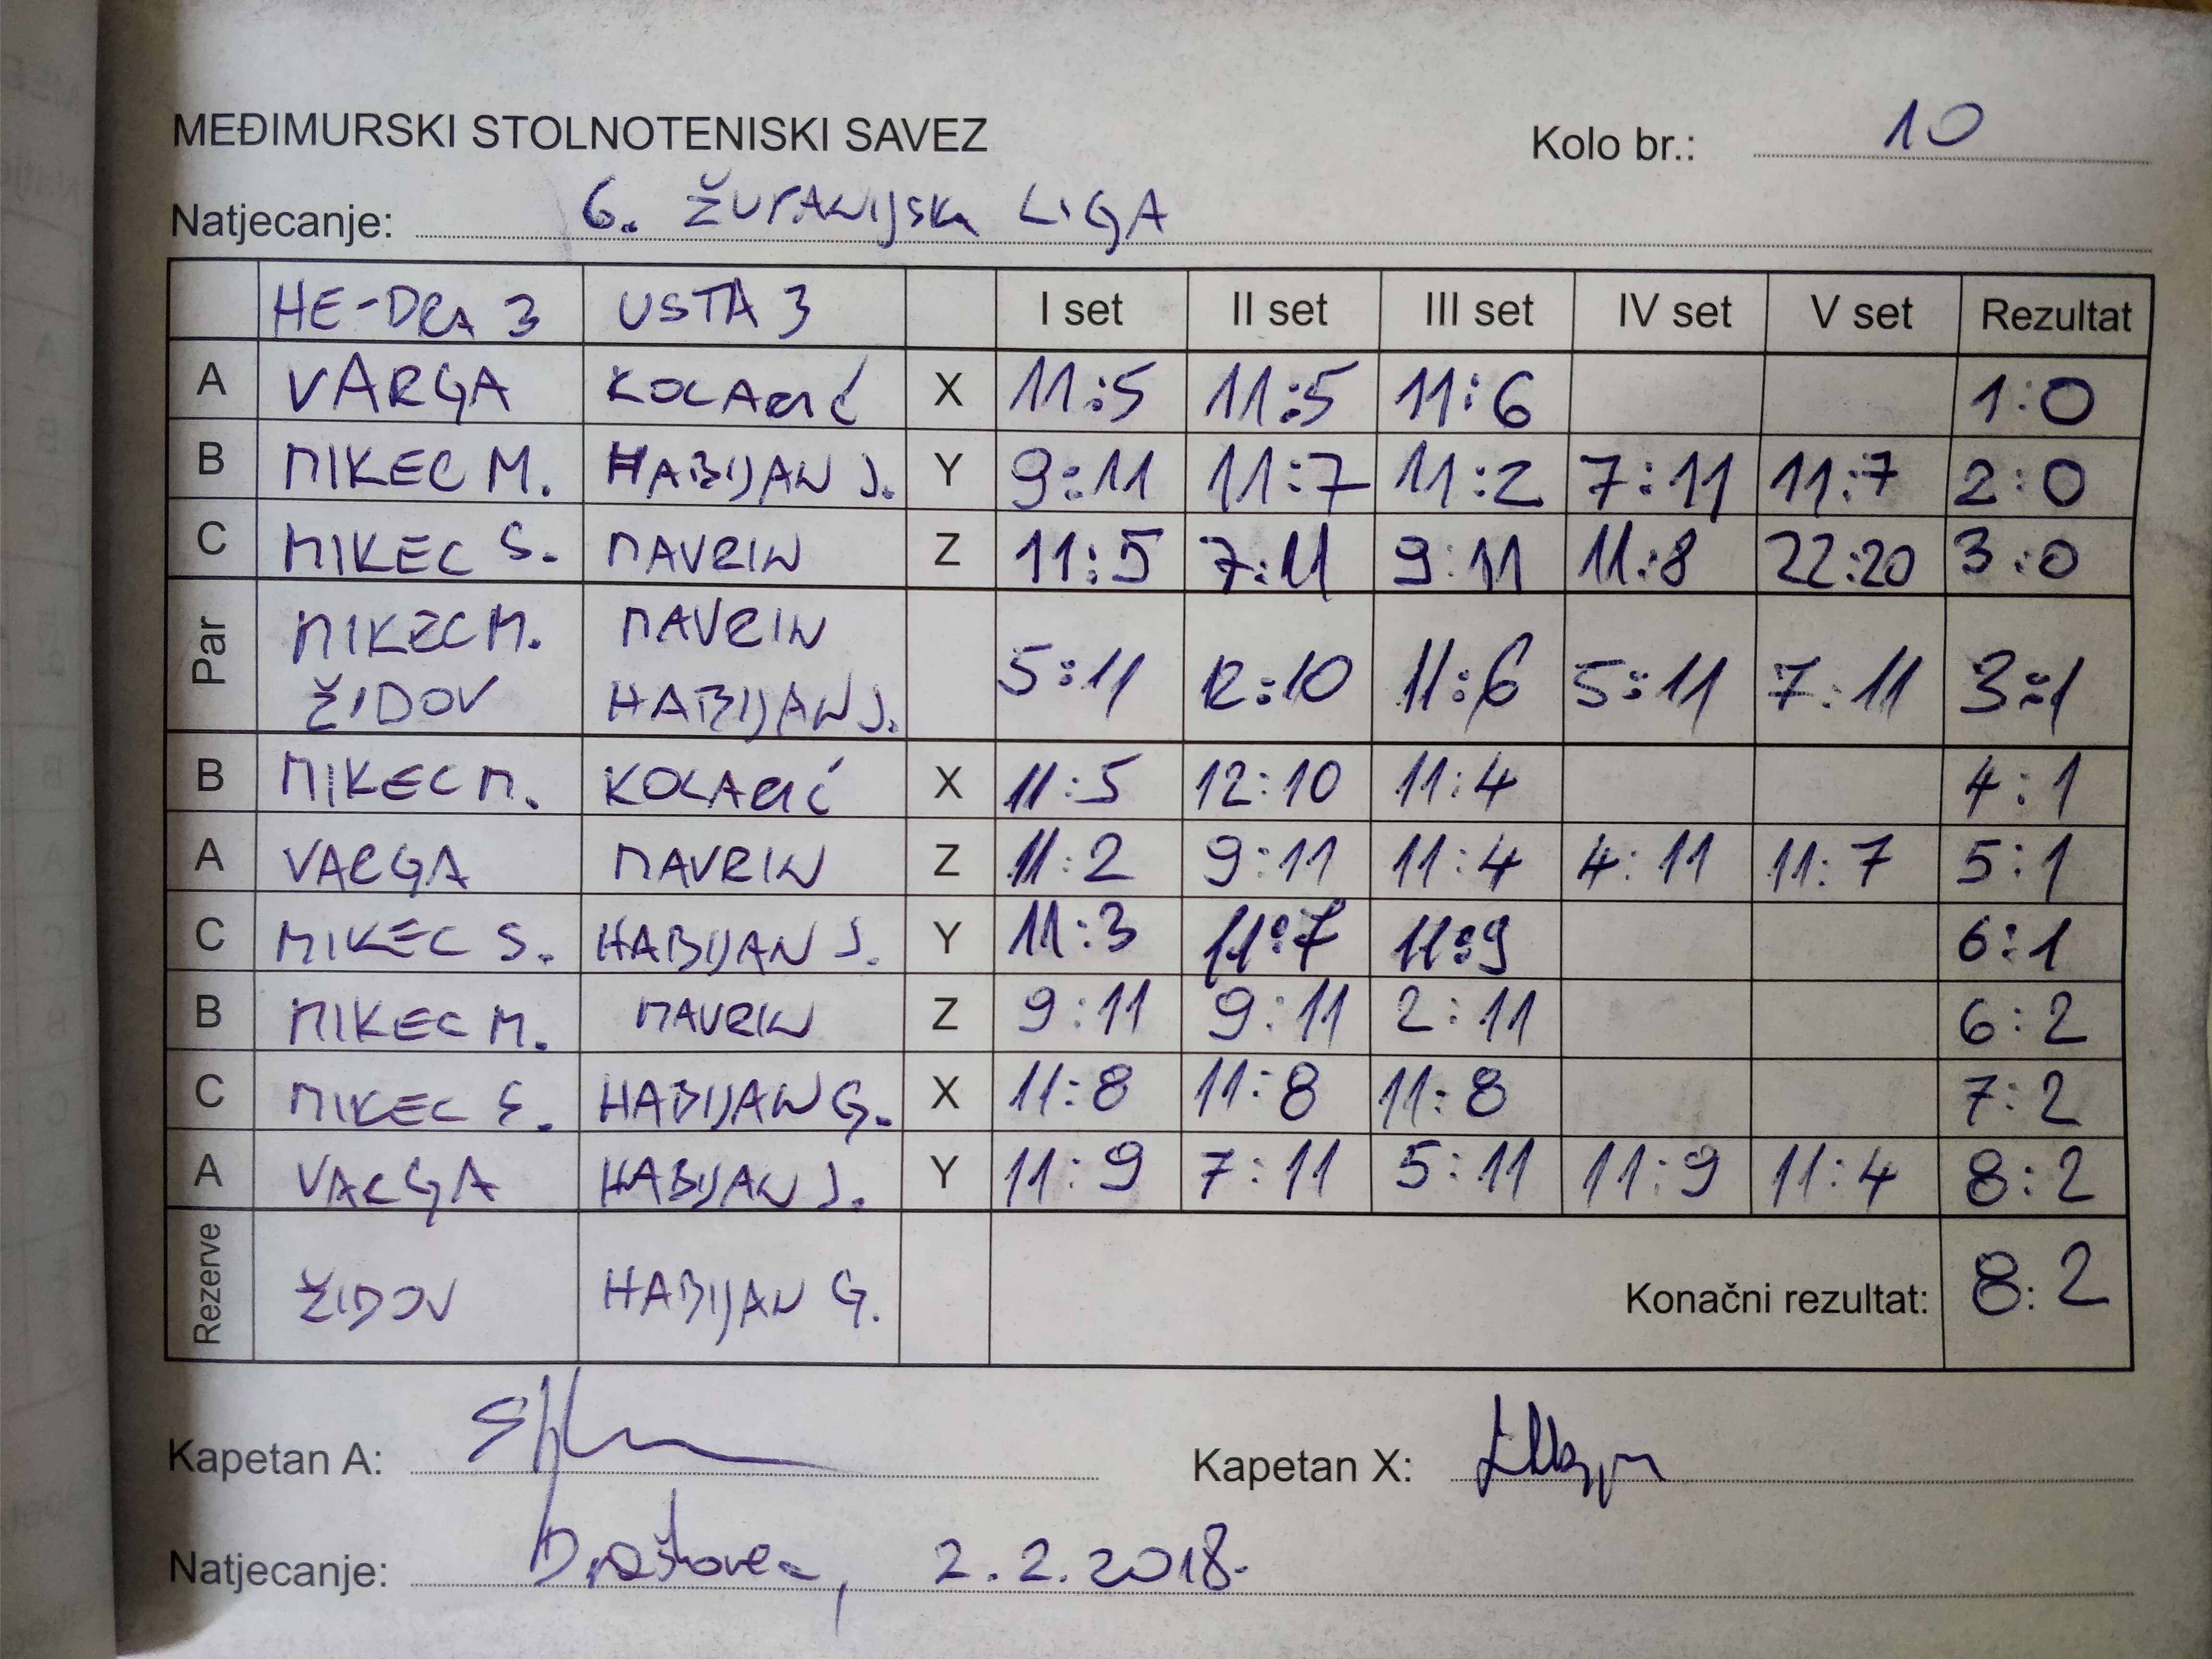 MEĐIMURSKI STOLNOTENISKI SAVEZ Kolo br.: 10
Natjecanje: 6. ŽUPANIJSKA LIGA
HE-DRA 3 USTA 3 I set II set III set IV set V set Rezultat
A VARGA KOLARIĆ X 11:5 11:5 11:6 1:0
B MIKEC M. HABIJAN J. Y 9:11 11:7 11:2 7:11 11:7 2:0
C MIKEC S. MAVRIN Z 11:5 7:11 9:11 11:8 22:20 3:0
Par MIKEC M. MAVRIN
ŽIDOV HABIJAN J. 5:11 12:10 11:6 5:11 7:11 3:1
B MIKEC M. KOLARIĆ X 11:5 12:10 11:4 4:1
A VARGA MAVRIN Z 11:2 9:11 11:4 4:11 11:7 5:1
C MIKEC S. HABIJAN J. Y 11:3 11:7 11:9 6:1
B MIKEC M. MAVRIN Z 9:11 9:11 2:11 6:2
C MIKEC S. HABIJAN G. X 11:8 11:8 11:8 7:2
A VARGA HABIJAN J. Y 11:9 7:11 5:11 11:9 11:4 8:2
Rezerve ŽIDOV HABIJAN G. Konačni rezultat: 8:2
Kapetan A: Kapetan X:
Natjecanje: Draškovec, 2.2.2018.